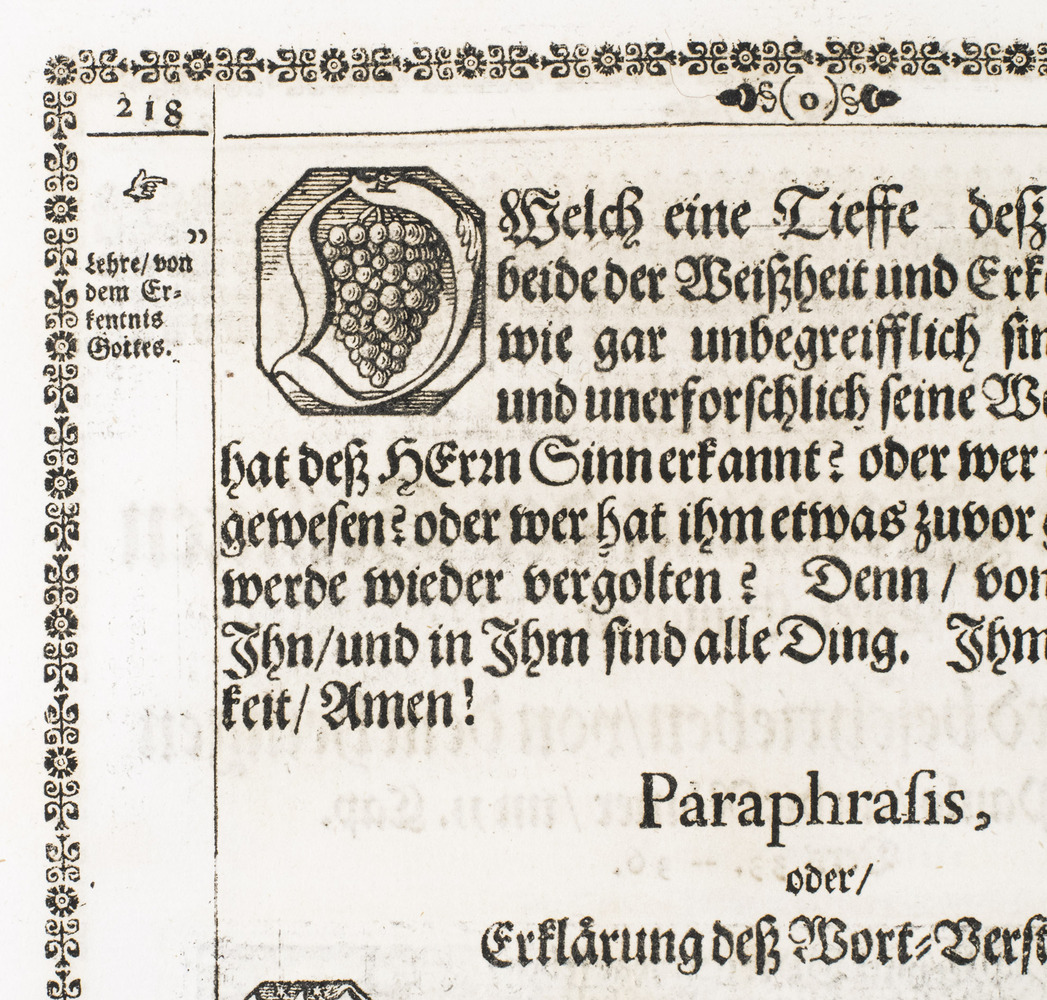 218
(o)
Lehre/ von
dem Er-
kentnis
Gottes.
O
Welch eine Tieffe deß
beide der Weißheit und Erk
wie gar unbegreifflich sin
und unerforschlich seine We
hat deß HErrn Sinn erkannt? oder wer
gewesen? oder wer hat ihm etwas zuvor
werde wieder vergolten? Denn / von
Ihn/ und in Ihm sind alle Ding. Ihm
keit/ Amen!
Paraphrasis,
oder/
Erklärung deß Wort-Verst